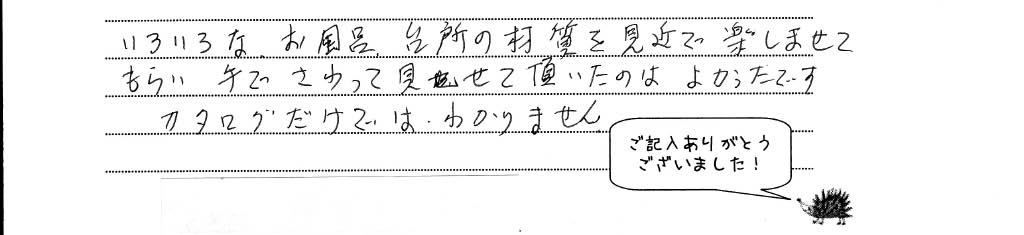 いろいろな、お風呂、台所の材質を見近で楽しませて
もらい 手でさわって見せて頂いたのは よかったです
カタログだけでは、わかりません
ご記入ありがとう
ございました！